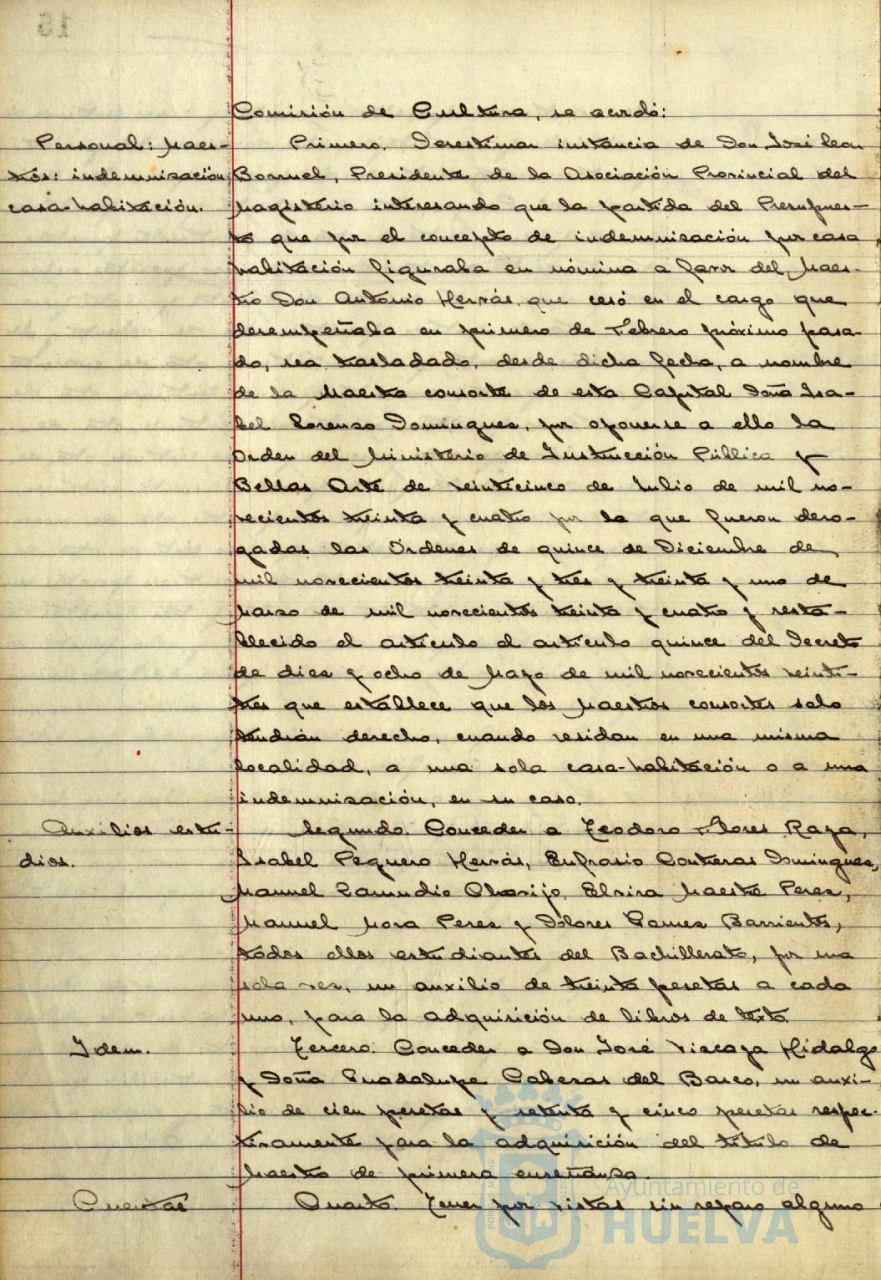 15
Comisión de Cultura, se acordó:
Personal: Maes-
tros: indemnización
casa-habitación.
Primero. Desestimar instancia de Don José Leon
Borruel, Presidente de la Asociación Provincial del
Magisterio interesando que la partida del Presupues-
to que por el concepto de indemnización por casa
habitación figuraba en nómina a favor del Maes-
tro Don Antonio Hervás, que cesó en el cargo que
desempeñaba en primero de Febrero próximo pasa-
do, sea trasladado, desde dicha fecha, a nombre
de la Maestra consorte de esta Capital Doña Isa-
bel Lorenzo Dominguez, por oponerse a ello la
Orden del Ministerio de Instrucción Pública y
Bellas Arte de veinticinco de Julio de mil no-
vecientos treinta y cuatro por la que fueron dero-
gadas las Órdenes de quince de Diciembre de
mil novecientos treinta y tres y treinta y uno de
Marzo de mil novecientos treinta y cuatro y resta-
blecido el artículo el artículo quince del Decreto
de diez y ocho de Mayo de mil novecientos veinti-
tres que establece que los Maestros consortes solo
tendrán derecho, cuando residan en una misma
localidad, a una sola casa-habitación o a una
indemnización, en su caso.
Auxilios estu-
dios.
Segundo. Conceder a Teodoro Flores Raya,
Isabel Peguero Hervás, Eufrasio Contreras Dominguez,
Manuel Zamudio Elvira Maestre Perez,
Manuel Mora Perez y Dolores Gamez Barrientos,
todos ellos estudiantes del Bachillerato, por una
sola vez, un auxilio de treinta pesetas a cada
uno, para la adquisición de libros de texto.
Idem.
Tercero. Conceder a Don José Viscaya Hidalgo
y Doña Guadalupe Caberas del Barco, un auxi-
lio de cien pesetas y setenta y cinco pesetas respec-
tivamente para la adquisición del título de
Maestro de primera enseñanza.
Cuentas
Cuarto. Tener por vistas sin reparo alguno
Ayuntamiento de
HUELVA